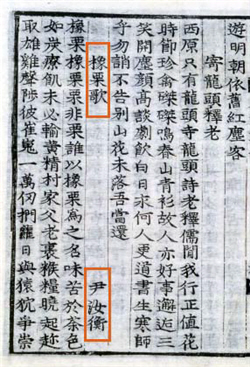 遊明朝依舊紅塵客
寄龍頭釋老
西原只有龍頭寺龍頭詩老釋儒間我行正値花
時節珍禽磔磔鳴春山青衫故人亦好事邂逅三
笑開塵顏高談劇飮白日求何人更道書生寒師
乎勿誚不告別山花未落吾當還
橡栗歌 尹汝衡
橡栗橡栗栗非栗誰以橡栗爲之名味苦於荼色
如炭療飢未必輸黃精村家父老裹糇糧曉起趁
取雄雞聲陟彼崔嵬一萬仞捫蘿日與猿狖爭崇